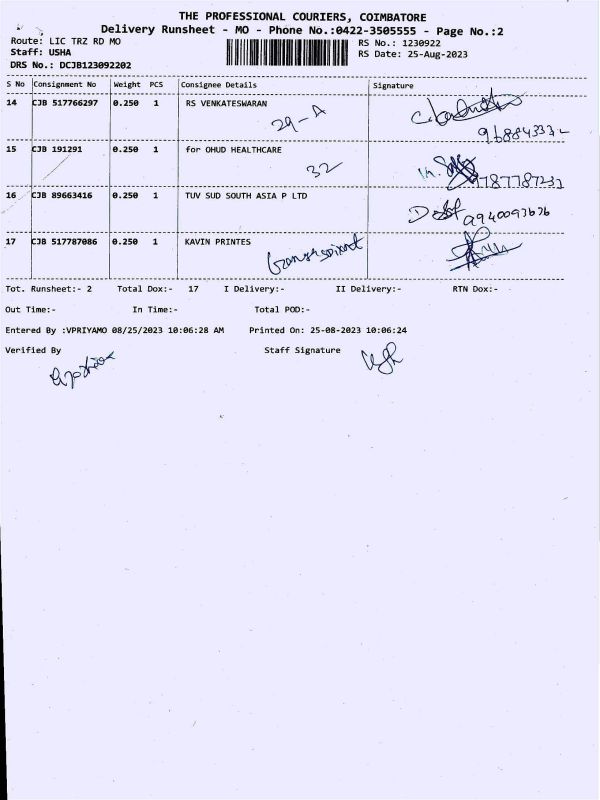 THE PROFESSIONAL COURIERS, COIMBATORE
Delivery Runsheet - MO - Phone No.:0422-3505555 - Page No.:2
Route: LIC TRZ RD MO RS No.: 1230922
Staff: USHA RS Date: 25-Aug-2023
DRS No.: DCJB123092202
S No Consignment No Weight PCS Consignee Details Signature
14 CJB 517766297 0.250 1 RS VENKATESWARAN
29-A
15 CJB 191291 0.250 1 for OHUD HEALTHCARE
32
9787787232
16 CJB 89663416 0.250 1 TUV SUD SOUTH ASIA P LTD
9940093676
17 CJB 517787086 0.250 1 KAVIN PRINTES
Tot. Runsheet:- 2 Total Dox:- 17 I Delivery:- II Delivery:- RTN Dox:-
Out Time:- In Time:- Total POD:-
Entered By :VPRIYAMO 08/25/2023 10:06:28 AM Printed On: 25-08-2023 10:06:24
Verified By Staff Signature